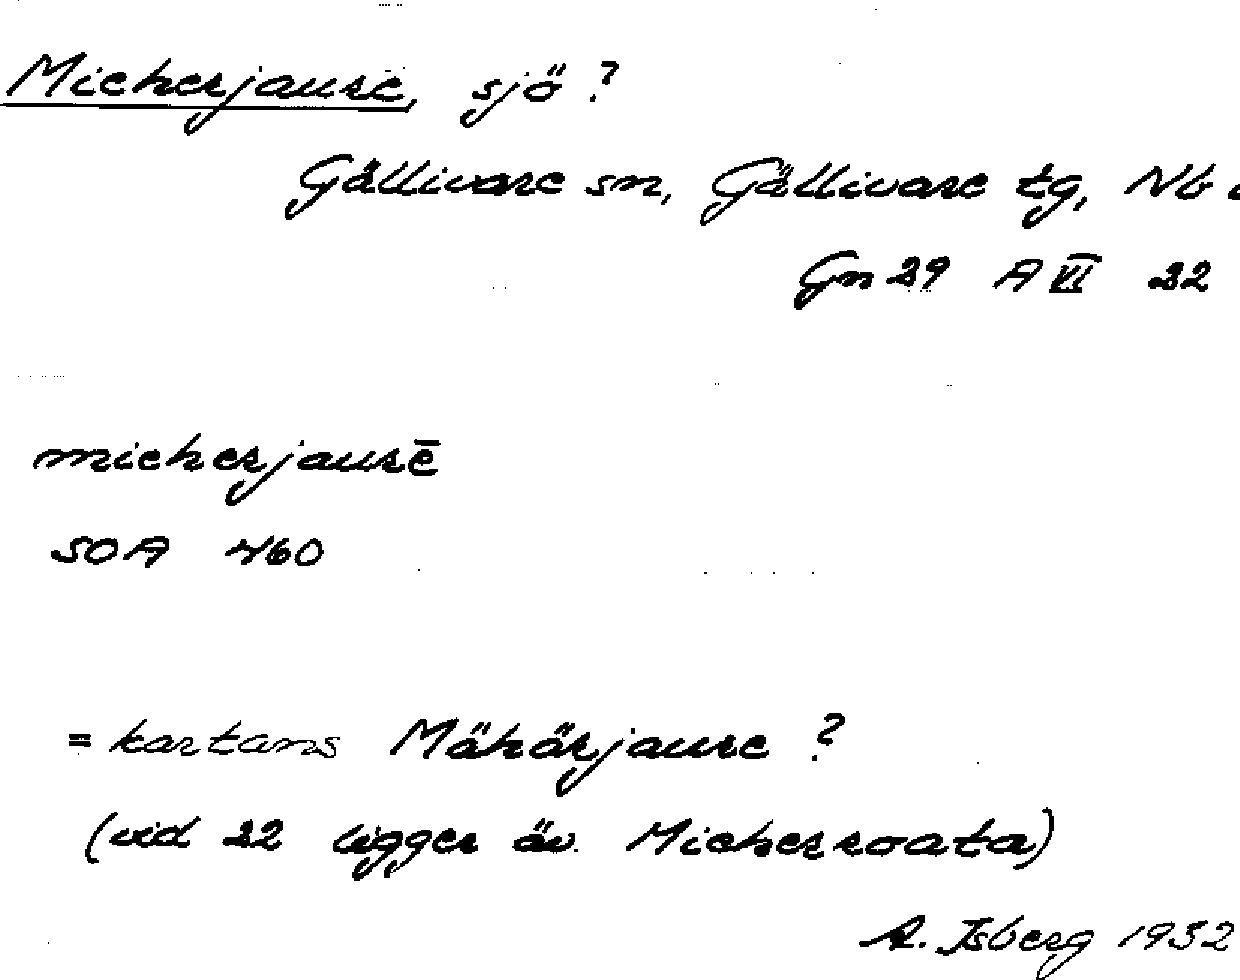 Micherjaure, sjö?
Gällivare sn, Gällivare tg, Nb
Gn 29 A VI 22
micherjaurē
SOA 460
= kartans Mähärjaure ?
(vid 22 ligger äv. Micherroata)
A. Isberg 1932